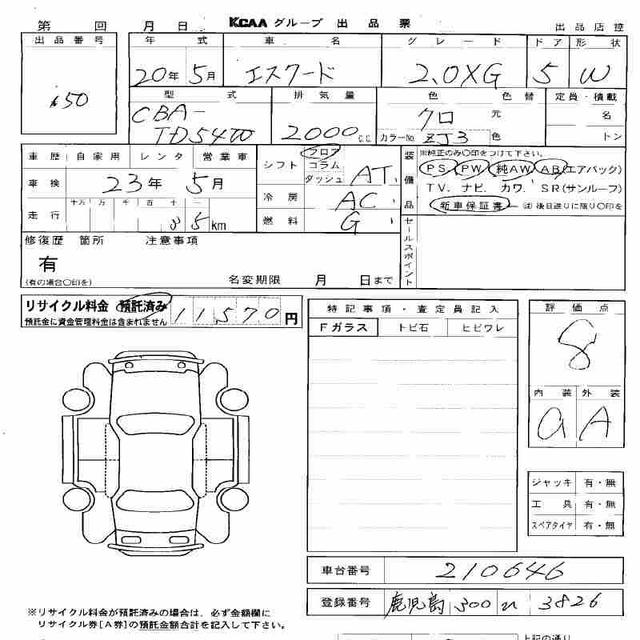 第 回 月 日 KCAA グループ 出品票 出品店控
出品番号 年式 車名 グレード ドア 形状
20年5月 エスクード 2.0XG 5 W
150 型式 排気量 色 色替 定員・積載
CBA-TD54W 2000 c.c. クロ 元 名
カラーNo. ZJ3 色 トン
車歴 自家用 レンタ 営業車 シフト フロア コラム ダッシュ AT 装備品 ※純正のみ○印をつけて下さい。
車検 23年5月 PS PW 純AW AB(エアバック)
冷房 AC TV. ナビ. カワ. SR(サンルーフ)
走行 十万 万 千 百 十 35km 燃料 G 新車保証書 は 後日送りに限り○印を
修復歴 箇所 注意事項 セールスポイント
有
(有の場合○印を) 名変期限 月 日まで
リサイクル料金 預託済み 11570円
預託金に資金管理料金は含まれません
特記事項・査定員記入 評価点
Fガラス トビ石 ヒビワレ
8
内装 外装
a A
ジャッキ 有・無
工具 有・無
スペアタイヤ 有・無
車台番号 210646
登録番号 鹿児島 300 3826
※リサイクル料金が預託済みの場合は、必ず金額欄に
リサイクル券[A券]の預託金額合計を記入して下さい。
上記の通り